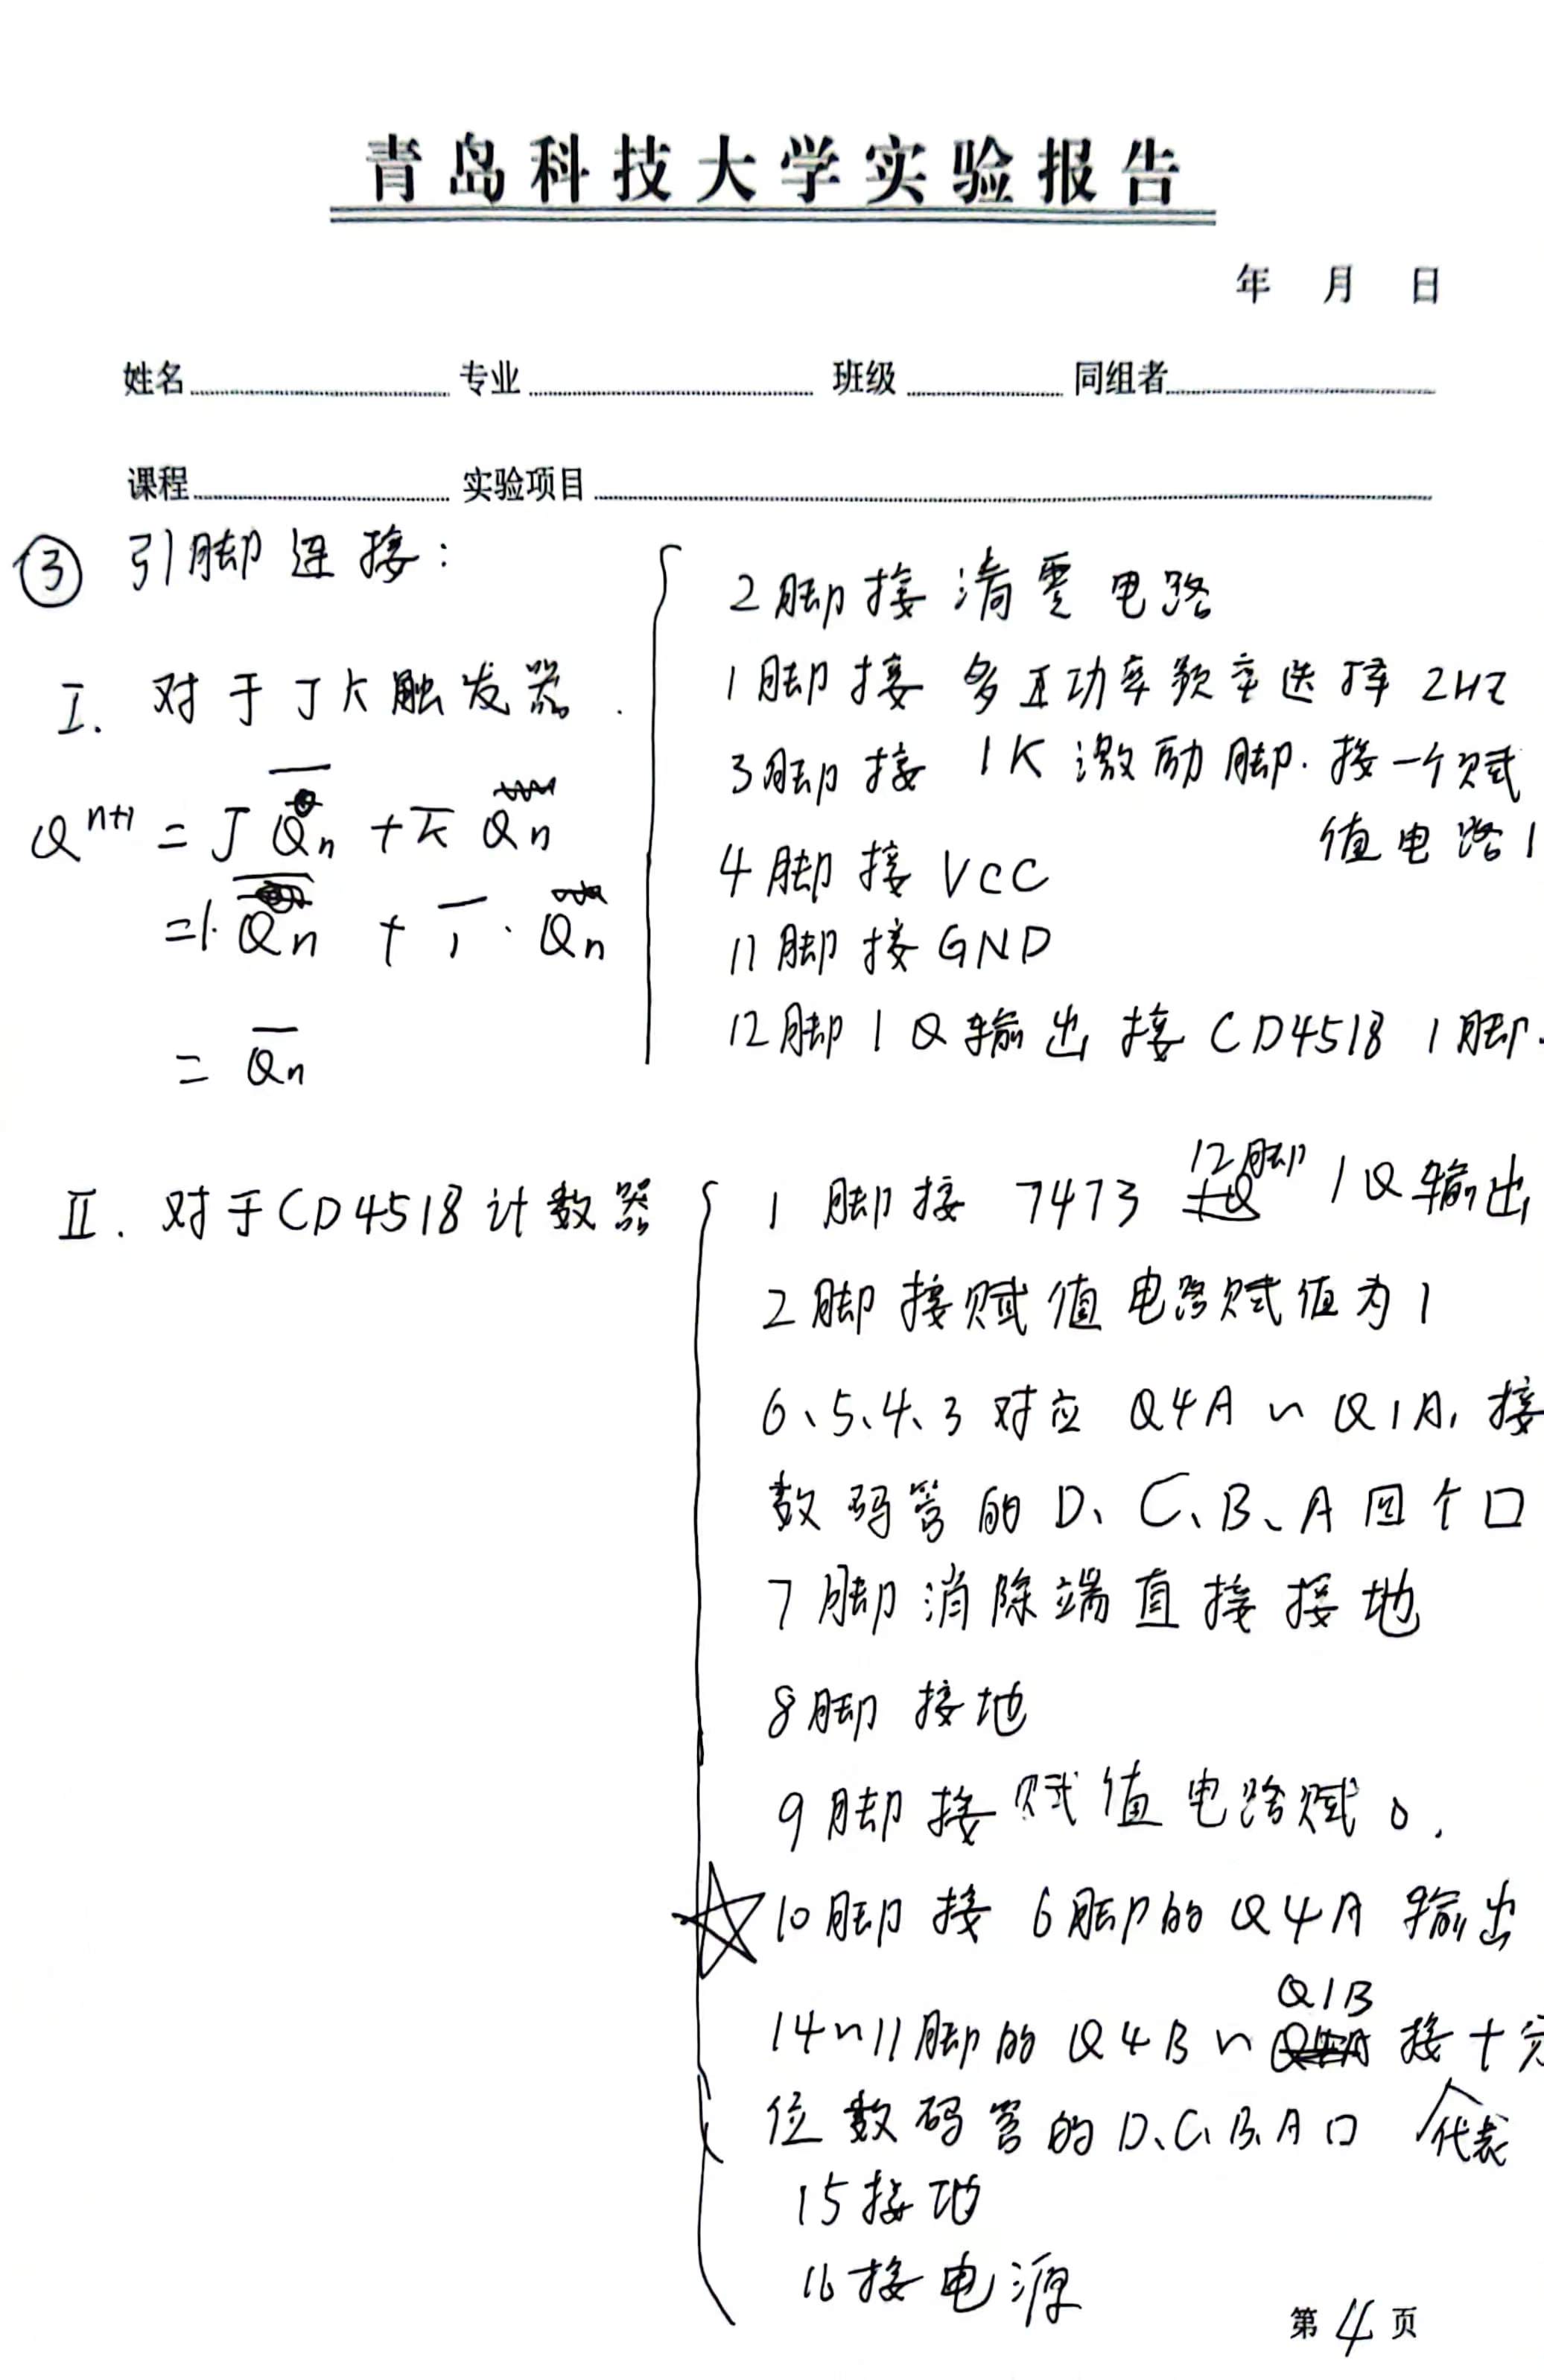 青岛科技大学实验报告
年 月 日
姓名 专业 班级 同组者
课程 实验项目
③ 引脚连接：
I. 对于JK触发器.
Qⁿ⁺¹ = J Q̅n̅ + K̅ Qn
=1· Q̅n̅ + 1̅ · Qn
= Q̅n̅
2脚接清零电路
1脚接 多 功率频率选择 2HZ
3脚接 1K 激励脚. 接一个赋
值电路1
4脚接 VCC
11脚接GND
12脚1Q输出接CD4518 1脚.
II. 对于CD4518计数器
1脚接 7473 12脚 1Q输出
2脚接赋值电路赋值为1
6、5、4、3对应 Q4A ~ Q1A, 接
数码管的D、C、B、A四个口
7脚消除端直接接地
8脚 接地
9脚接赋值电路赋0.
☆10脚接6脚的Q4A输出
14~11脚的Q4B~Q1B接十分
位数码管的D、C、B、A口 代表
15接地
16接电源
第4页